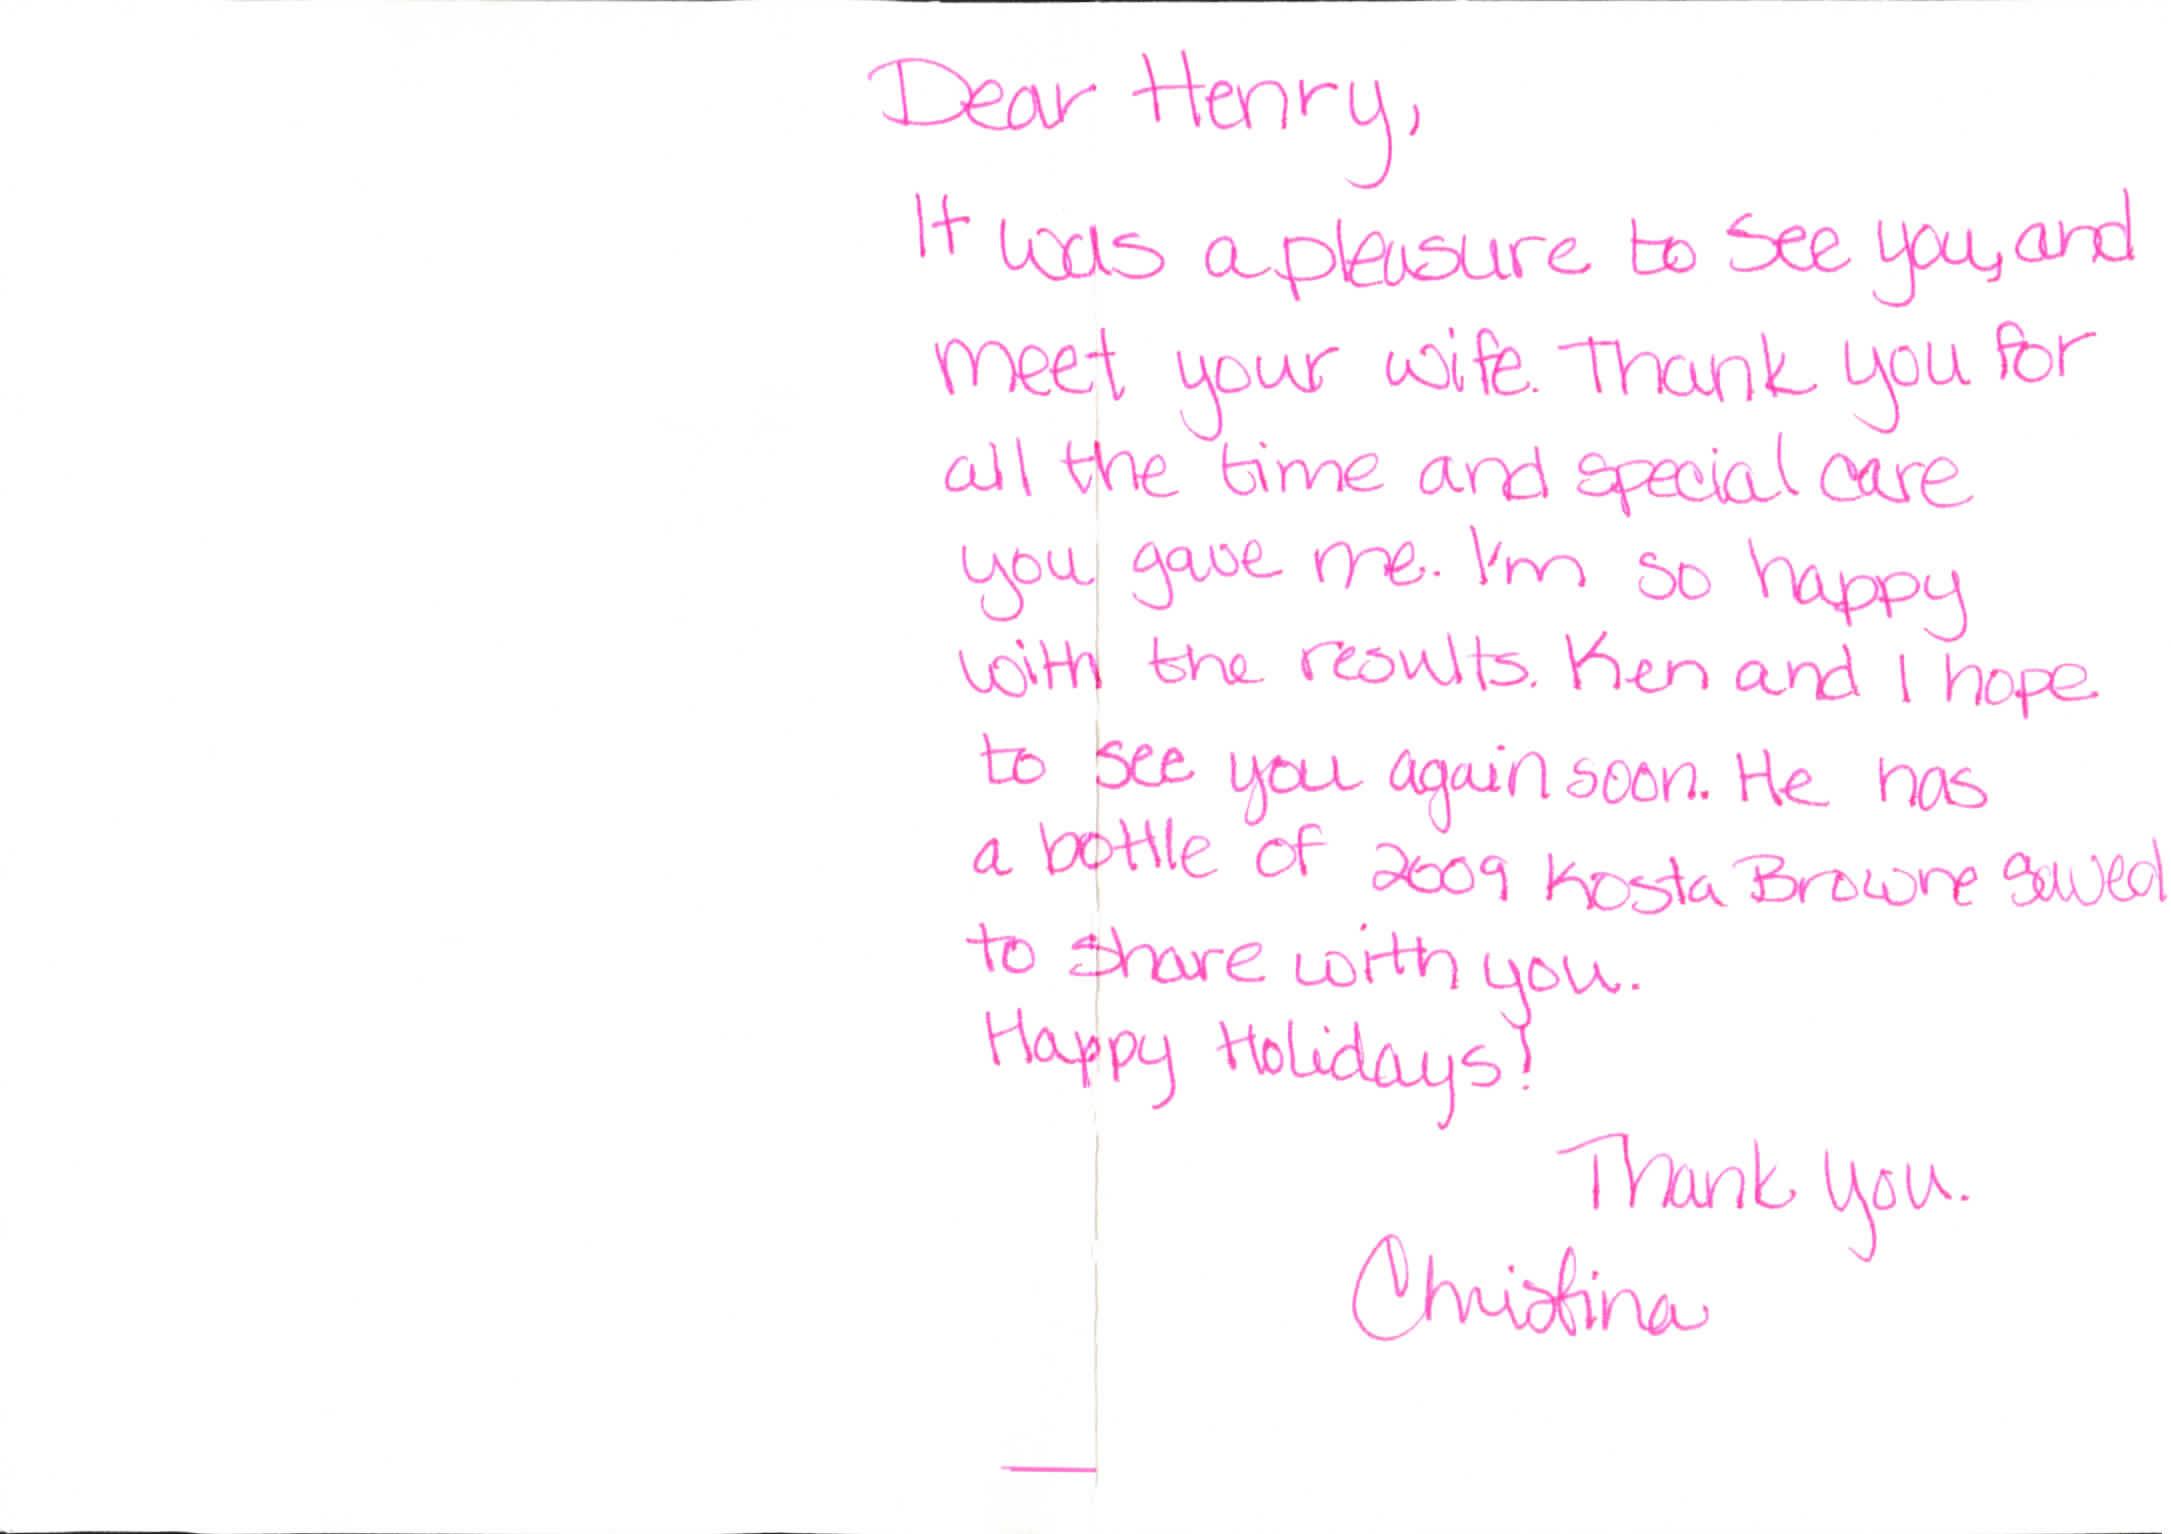 Dear Henry,
It was a pleasure to see you, and
meet your wife. Thank you for
all the time and special care
you gave me. I'm so happy
with the results. Ken and I hope
to see you again soon. He has
a bottle of 2009 Kosta Browne saved
to share with you.
Happy Holidays!
Thank you.
Christina